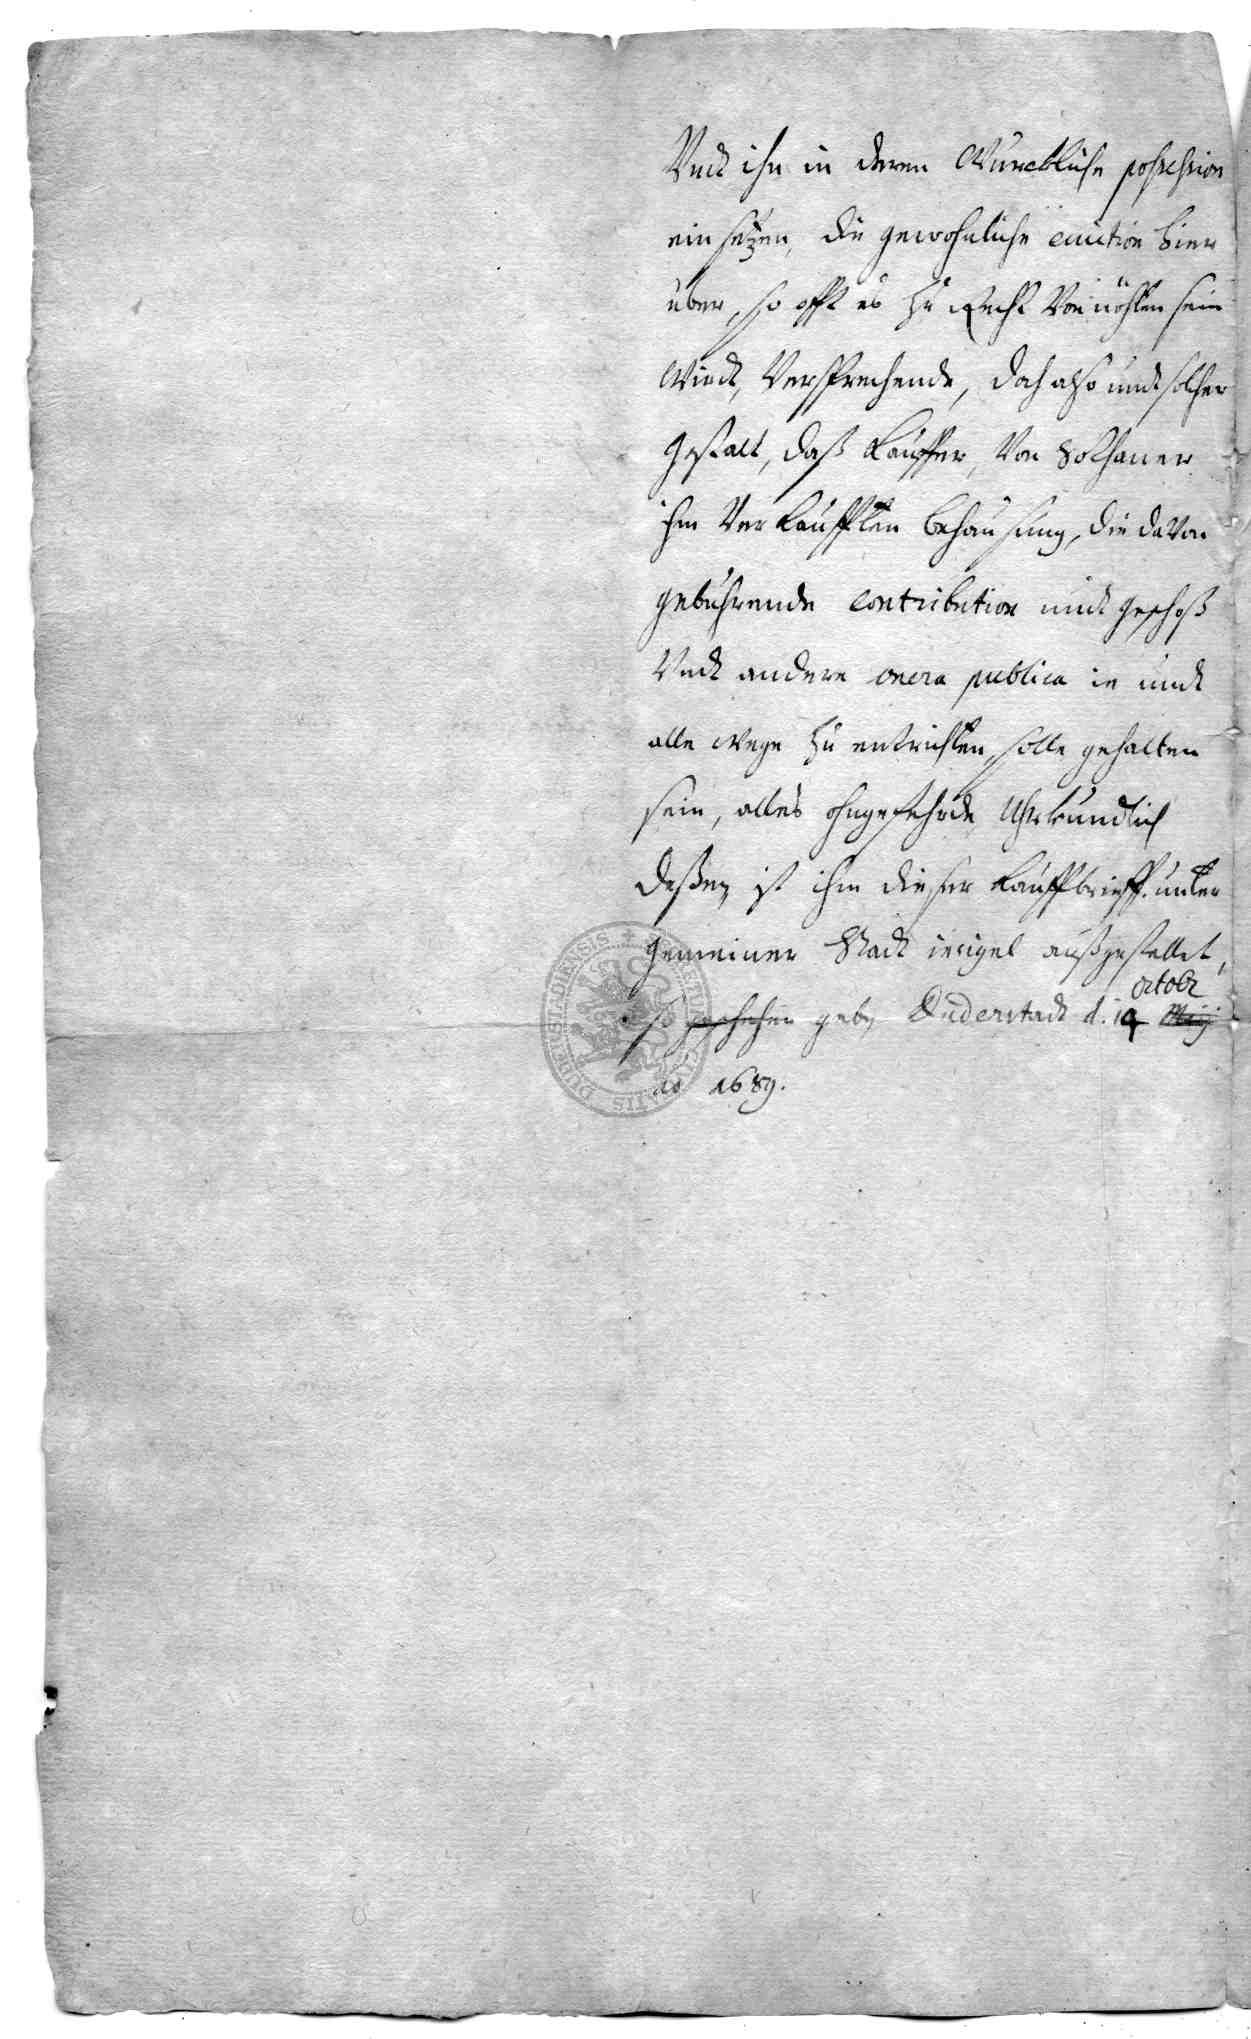 Vndt ihn in deren Würckliche possession
ein setzen, die gewohnliche eviction hier
über, so offt es zu Recht Von nöhten sein
wirdt, Versprechende, doch also undt solcher
gestalt, daß Käuffer, Von solhaner
ihm Verkaufften behausung, die davon
gebührende contribution undt geschoß
Vndt andere onera publica in undt
alle wege zu entrichten, solle gehalten
sein, alles ohngefehrde, Uhrkundtlich
deßen ist ihm dieser Kauffbrieff unter
gemeiner Stadt insigel außgestellet,
octobr
so geschehen geben Duderstadt d. 14 Maij
ao 1689.
SIGILLUM CIVITATIS DUDERSTADIENSIS